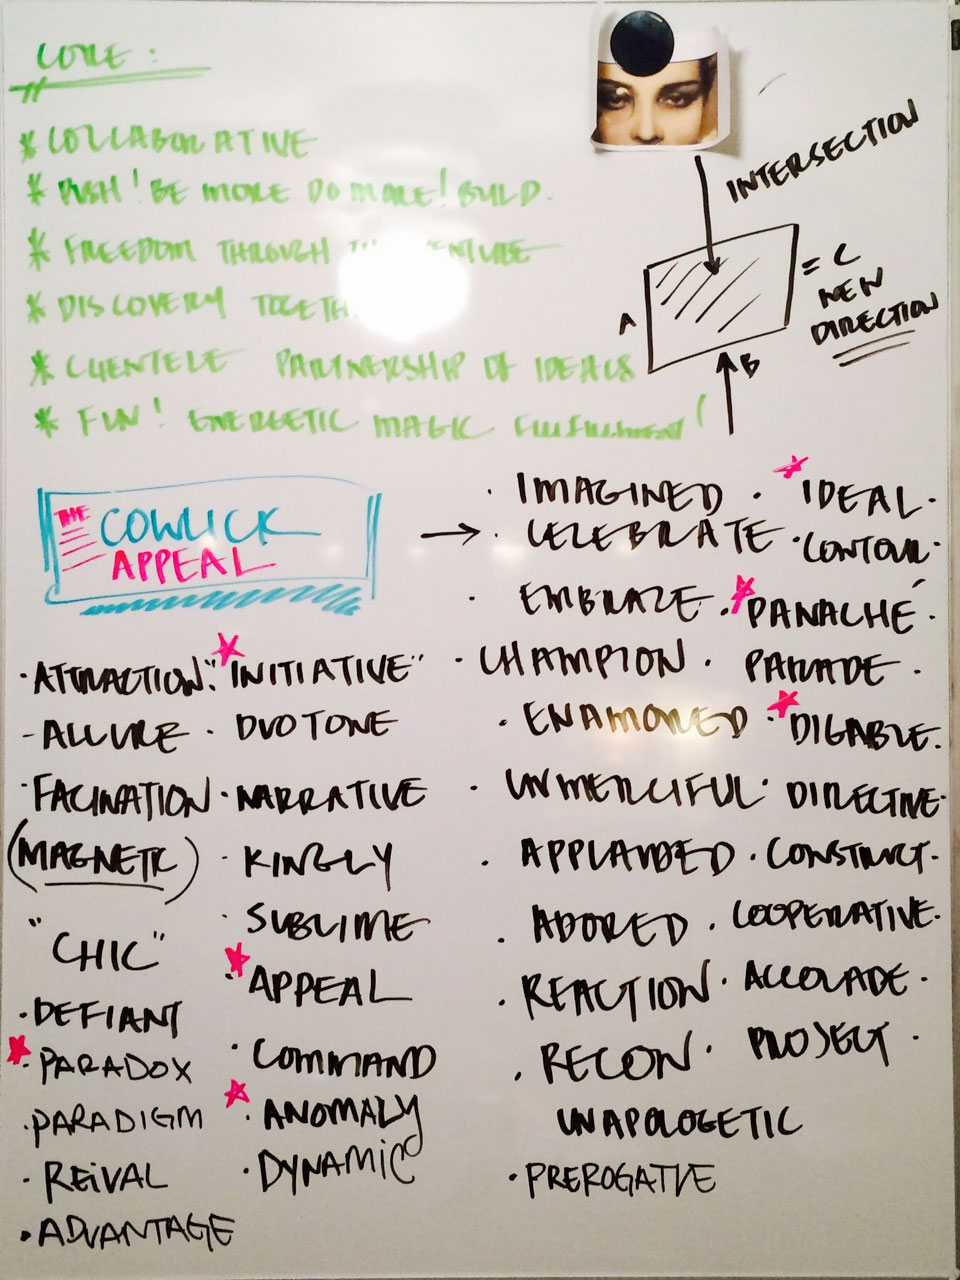 CORE:
* COLLABORATIVE
* PUSH! BE MORE DO MORE! BUILD.
* FREEDOM THROUGH
* DISCOVERY TOGETH
* CLIENTELE PARTNERSHIP OF IDEALS
* FUN! ENERGETIC MAGIC FULFILLMENT!
INTERSECTION
A
B
= C
NEW
DIRECTION
THE
COWLICK
APPEAL
· ATTRACTION.
- ALLURE
· FACINATION
(MAGNETIC)
"CHIC"
· DEFIANT
· PARADOX
· PARADIGM
· REIVAL
· ADVANTAGE
"INITIATIVE"
· DUOTONE
· NARRATIVE
· KINGLY
· SUBLIME
· APPEAL
· COMMAND
· ANOMALY
· DYNAMIC
· IMAGINED
· CELEBRATE
· EMBRAZE
· CHAMPION
· ENAMORED
· UNMERCIFUL
· APPLAUDED
· ADORED
· REACTION
· RECON
UNAPOLOGETIC
· PREROGATIVE
· IDEAL ·
· CONTOUR ·
· PANACHÉ ·
· PARADE ·
· DIGABLE.
· DIRECTIVE ·
· CONSTRUCT ·
· COOPERATIVE ·
· ACCOLADE ·
· PROJECT ·